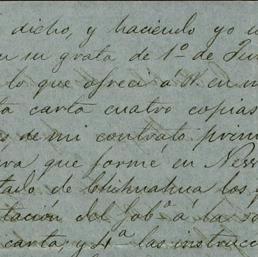 dicho, y haciendo yo u
su grata de 1º de Ju
lo que ofrecí á V. en m
ta carta cuatro copias
s de mi contrato prim
va que forme en
tado de Chihuahua los
tación del Gobº á la so
carta, y 4ª las instrucc